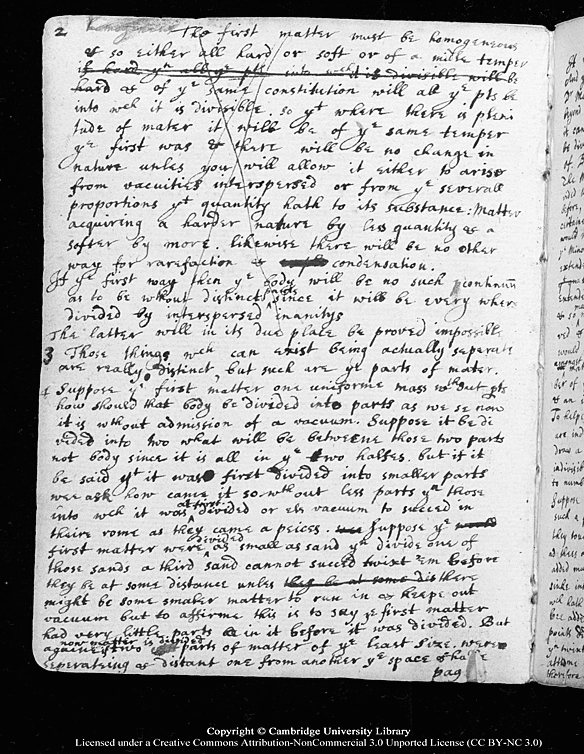 2 The first matter must be homogeneous
& so either all hard or soft or of a midle temper
if hard yn all ye pts into wch it is divisible will be
hard as of ye same constitution will all ye pts be
into wch it is divisible. so yt where there is pleni
tude of mater it will be of ye same temper
ye first was & there will be no change in
nature unles you will allow it either to arise
from vacuities interspersed or from ye severall
proportions yt quantity hath to its substance: Matter
acquiring a harder nature by less quantity & a
softer by more. likewise there will be no other
way for rarefaction & condensation.
If ye first way then ye body will be no such continuū
as to be wthout distinct parts since it will be every where
divided by interspersed inanitys
The latter will in its due place be proved impossible
3 Those things wch can exist being actually seperate
are really distinct, but such are ye parts of mater.
4 Suppose ye first matter one uniforme mass wthout pts
how should that body be devided into parts as we se now
it is without admission of a vacuum. Suppose it be di
veded into two what will be betweene those two parts
not body since it is all in ye two halfes. but if it
be said yt it was first divided into smaller parts
wee ask how came it so wthout less parts yn those
into wch it was at first divided or els vacuum to succed in
theire rome as they came a peices. Suppose ye
first matter were divided as small as sand yn divide one of
those sands a third sand cannot succed twixt 'em before
they be at some distance unles they be at some dis there
might be some smaler matter to run in & keepe out
vacuum but to affirme this is to say ye first matter
had very little parts in it before it was divided. But
againe if two parts of matter of ye least size were
now matter is divided
seperateing as distant one from another ye space
pag
Copyright © Cambridge University Library
Licensed under a Creative Commons Attribution-NonCommercial 3.0 Unported License (CC BY-NC 3.0)